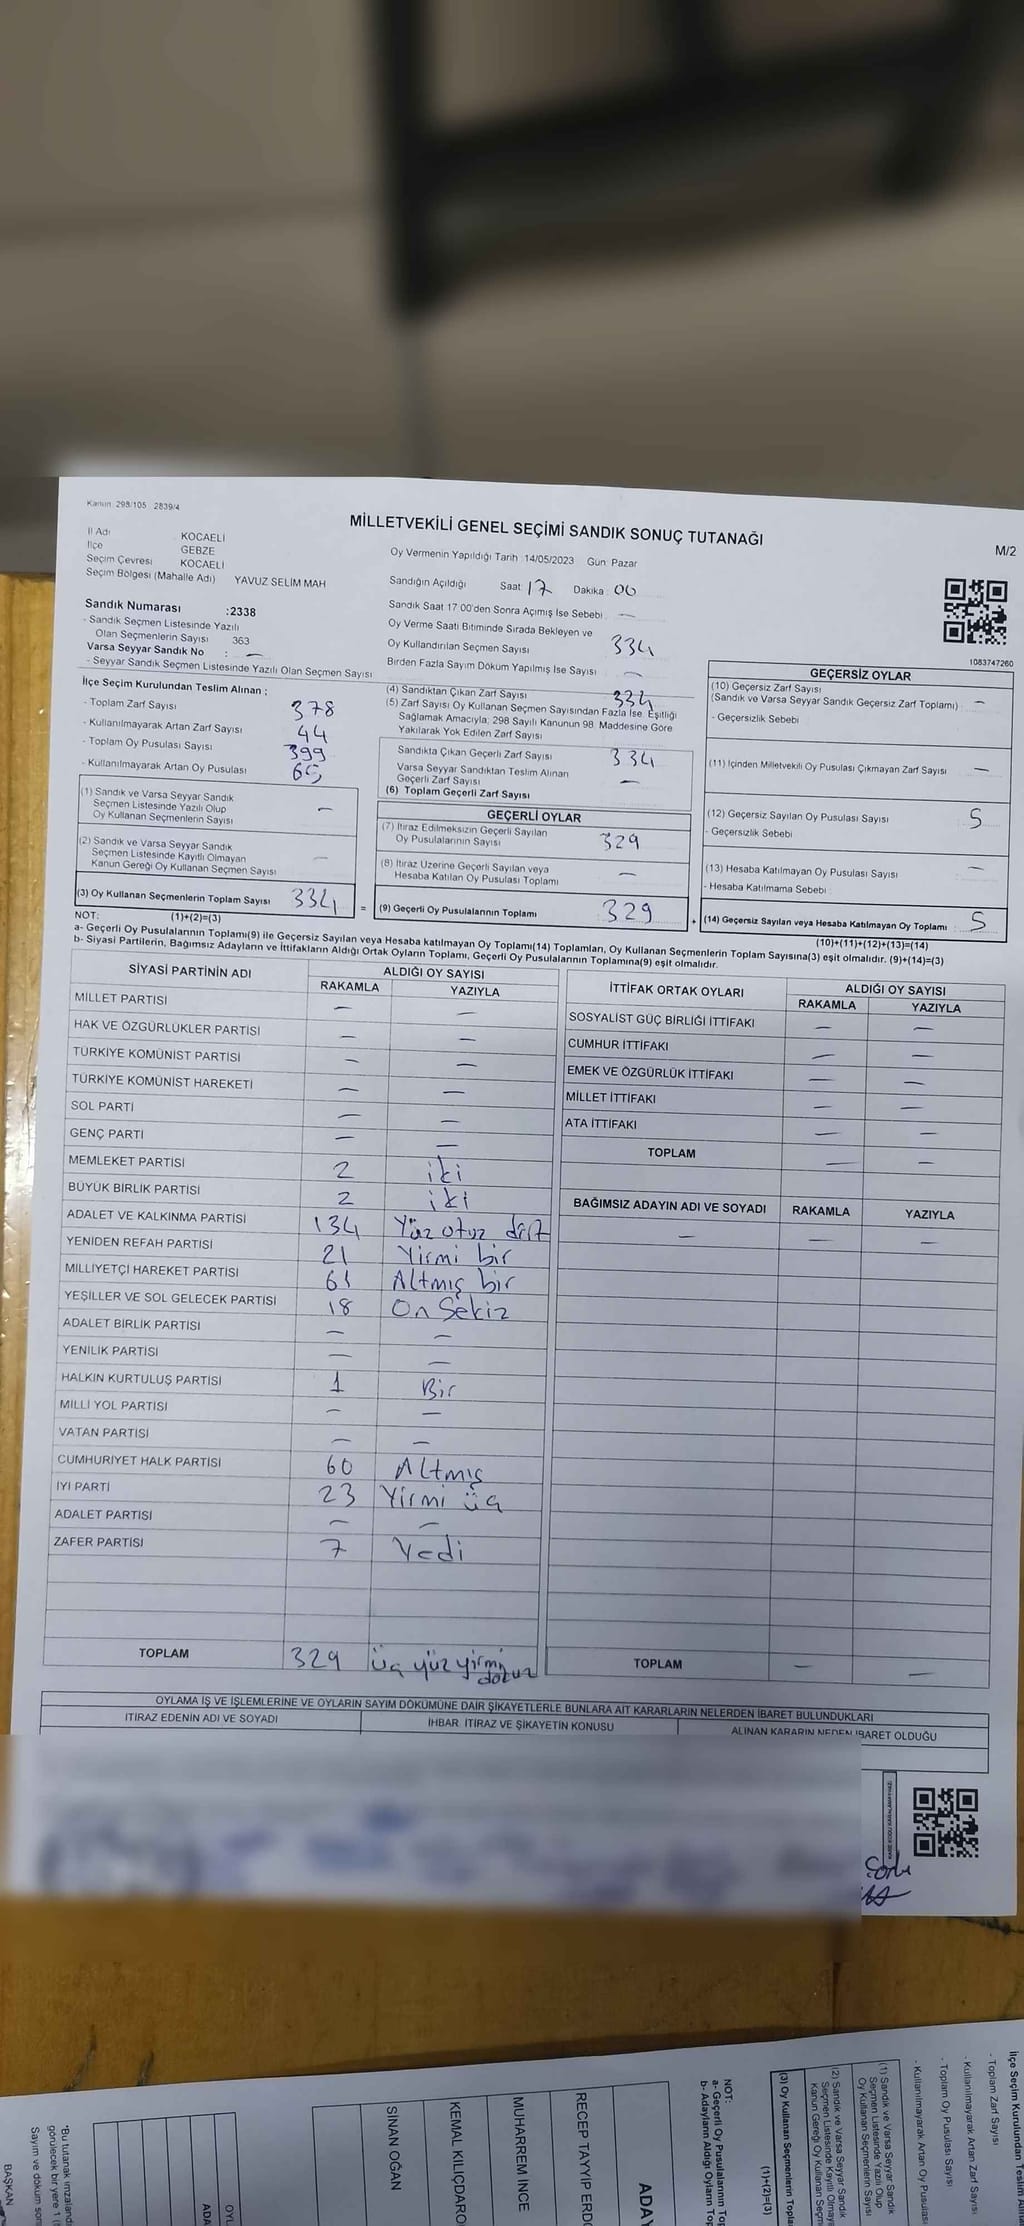 Kanun: 298/105 2839/4
MİLLETVEKİLİ GENEL SEÇİMİ SANDIK SONUÇ TUTANAĞI
M/2
İl Adı KOCAELİ
İlçe GEBZE
Seçim Çevresi KOCAELİ
Seçim Bölgesi (Mahalle Adı) YAVUZ SELİM MAH
Oy Vermenin Yapıldığı Tarih :14/05/2023 Gün: Pazar
Sandığın Açıldığı Saat: 17 Dakika: 00
Sandık Saat 17:00'den Sonra Açımış İse Sebebi: —
Oy Verme Saati Bitiminde Sırada Bekleyen ve
Oy Kullandırılan Seçmen Sayısı 334
Birden Fazla Sayım Döküm Yapılmış İse Sayısı —
Sandık Numarası :2338
- Sandık Seçmen Listesinde Yazılı
Olan Seçmenlerin Sayısı 363
Varsa Seyyar Sandık No : —
- Seyyar Sandık Seçmen Listesinde Yazılı Olan Seçmen Sayısı
1083747260
İlçe Seçim Kurulundan Teslim Alınan ;
- Toplam Zarf Sayısı 378
- Kullanılmayarak Artan Zarf Sayısı 44
- Toplam Oy Pusulası Sayısı 399
- Kullanılmayarak Artan Oy Pusulası 65
(1) Sandık ve Varsa Seyyar Sandık
Seçmen Listesinde Yazılı Olup
Oy Kullanan Seçmenlerin Sayısı —
(2) Sandık ve Varsa Seyyar Sandık
Seçmen Listesinde Kayıtlı Olmayan
Kanun Gereği Oy Kullanan Seçmen Sayısı —
(3) Oy Kullanan Seçmenlerin Toplam Sayısı 334
(4) Sandıktan Çıkan Zarf Sayısı 334
(5) Zarf Sayısı Oy Kullanan Seçmen Sayısından Fazla İse, Eşitliği
Sağlamak Amacıyla; 298 Sayılı Kanunun 98. Maddesine Göre
Yakılarak Yok Edilen Zarf Sayısı
Sandıkta Çıkan Geçerli Zarf Sayısı 334
Varsa Seyyar Sandıktan Teslim Alınan
Geçerli Zarf Sayısı —
(6) Toplam Geçerli Zarf Sayısı
GEÇERLİ OYLAR
(7) İtiraz Edilmeksizin Geçerli Sayılan
Oy Pusulalarının Sayısı 329
(8) İtiraz Üzerine Geçerli Sayılan veya
Hesaba Katılan Oy Pusulası Toplamı —
= (9) Geçerli Oy Pusulalarının Toplamı 329 +
GEÇERSİZ OYLAR
(10) Geçersiz Zarf Sayısı
(Sandık ve Varsa Seyyar Sandık Geçersiz Zarf Toplamı) —
- Geçersizlik Sebebi
(11) İçinden Milletvekili Oy Pusulası Çıkmayan Zarf Sayısı —
(12) Geçersiz Sayılan Oy Pusulası Sayısı 5
- Geçersizlik Sebebi
(13) Hesaba Katılmayan Oy Pusulası Sayısı —
- Hesaba Katılmama Sebebi :
(14) Geçersiz Sayılan veya Hesaba Katılmayan Oy Toplamı : 5
NOT: (1)+(2)=(3)
(10)+(11)+(12)+(13)=(14)
a- Geçerli Oy Pusulalarının Toplamı(9) ile Geçersiz Sayılan veya Hesaba katılmayan Oy Toplamı(14) Toplamları, Oy Kullanan Seçmenlerin Toplam Sayısına(3) eşit olmalıdır. (9)+(14)=(3)
b- Siyasi Partilerin, Bağımsız Adayların ve İttifakların Aldığı Ortak Oyların Toplamı, Geçerli Oy Pusulalarının Toplamına(9) eşit olmalıdır.
SİYASİ PARTİNİN ADI ALDIĞI OY SAYISI
RAKAMLA YAZIYLA
MİLLET PARTİSİ — —
HAK VE ÖZGÜRLÜKLER PARTİSİ — —
TÜRKİYE KOMÜNİST PARTİSİ — —
TÜRKİYE KOMÜNİST HAREKETİ — —
SOL PARTİ — —
GENÇ PARTİ — —
MEMLEKET PARTİSİ 2 iki
BÜYÜK BİRLİK PARTİSİ 2 iki
ADALET VE KALKINMA PARTİSİ 134 Yüz otuz dört
YENİDEN REFAH PARTİSİ 21 Yirmi bir
MİLLİYETÇİ HAREKET PARTİSİ 61 Altmış bir
YEŞİLLER VE SOL GELECEK PARTİSİ 18 On Sekiz
ADALET BİRLİK PARTİSİ — —
YENİLİK PARTİSİ — —
HALKIN KURTULUŞ PARTİSİ 1 Bir
MİLLİ YOL PARTİSİ — —
VATAN PARTİSİ — —
CUMHURİYET HALK PARTİSİ 60 Altmış
İYİ PARTİ 23 Yirmi üç
ADALET PARTİSİ — —
ZAFER PARTİSİ 7 Yedi
TOPLAM 329 üç yüz yirmi dokuz
İTTİFAK ORTAK OYLARI ALDIĞI OY SAYISI
RAKAMLA YAZIYLA
SOSYALİST GÜÇ BİRLİĞİ İTTİFAKI — —
CUMHUR İTTİFAKI — —
EMEK VE ÖZGÜRLÜK İTTİFAKI — —
MİLLET İTTİFAKI — —
ATA İTTİFAKI — —
TOPLAM — —
BAĞIMSIZ ADAYIN ADI VE SOYADI RAKAMLA YAZIYLA
— — —
TOPLAM — —
OYLAMA İŞ VE İŞLEMLERİNE VE OYLARIN SAYIM DÖKÜMÜNE DAİR ŞİKAYETLERLE BUNLARA AİT KARARLARIN NELERDEN İBARET BULUNDUKLARI
İTİRAZ EDENİN ADI VE SOYADI İHBAR, İTİRAZ VE ŞİKAYETİN KONUSU ALINAN KARARIN NEDEN İBARET OLDUĞU
İlçe Seçim Kurulundan Teslim Alınan
- Toplam Zarf Sayısı
- Kullanılmayarak Artan Zarf Sayısı
- Toplam Oy Pusulası Sayısı
- Kullanılmayarak Artan Oy Pusulası
(1) Sandık ve Varsa Seyyar Sandık
Seçmen Listesinde Yazılı Olup
Oy Kullanan Seçmenlerin Sayısı
(2) Sandık ve Varsa Seyyar Sandık
Seçmen Listesinde Kayıtlı Olmay
Kanun Gereği Oy Kullanan Seçm
(3) Oy Kullanan Seçmenlerin Topla
(1)+(2)=(3)
NOT:
a- Geçerli Oy Pusulalarının Top
b- Adayların Aldığı Oyların Top
ADAY
RECEP TAYYİP ERDO
MUHARREM İNCE
KEMAL KILIÇDARO
SİNAN OĞAN
OYL
ADA
"Bu tutanak imzaland
görülecek bir yere 1 (
Sayım ve döküm son
BAŞKAN